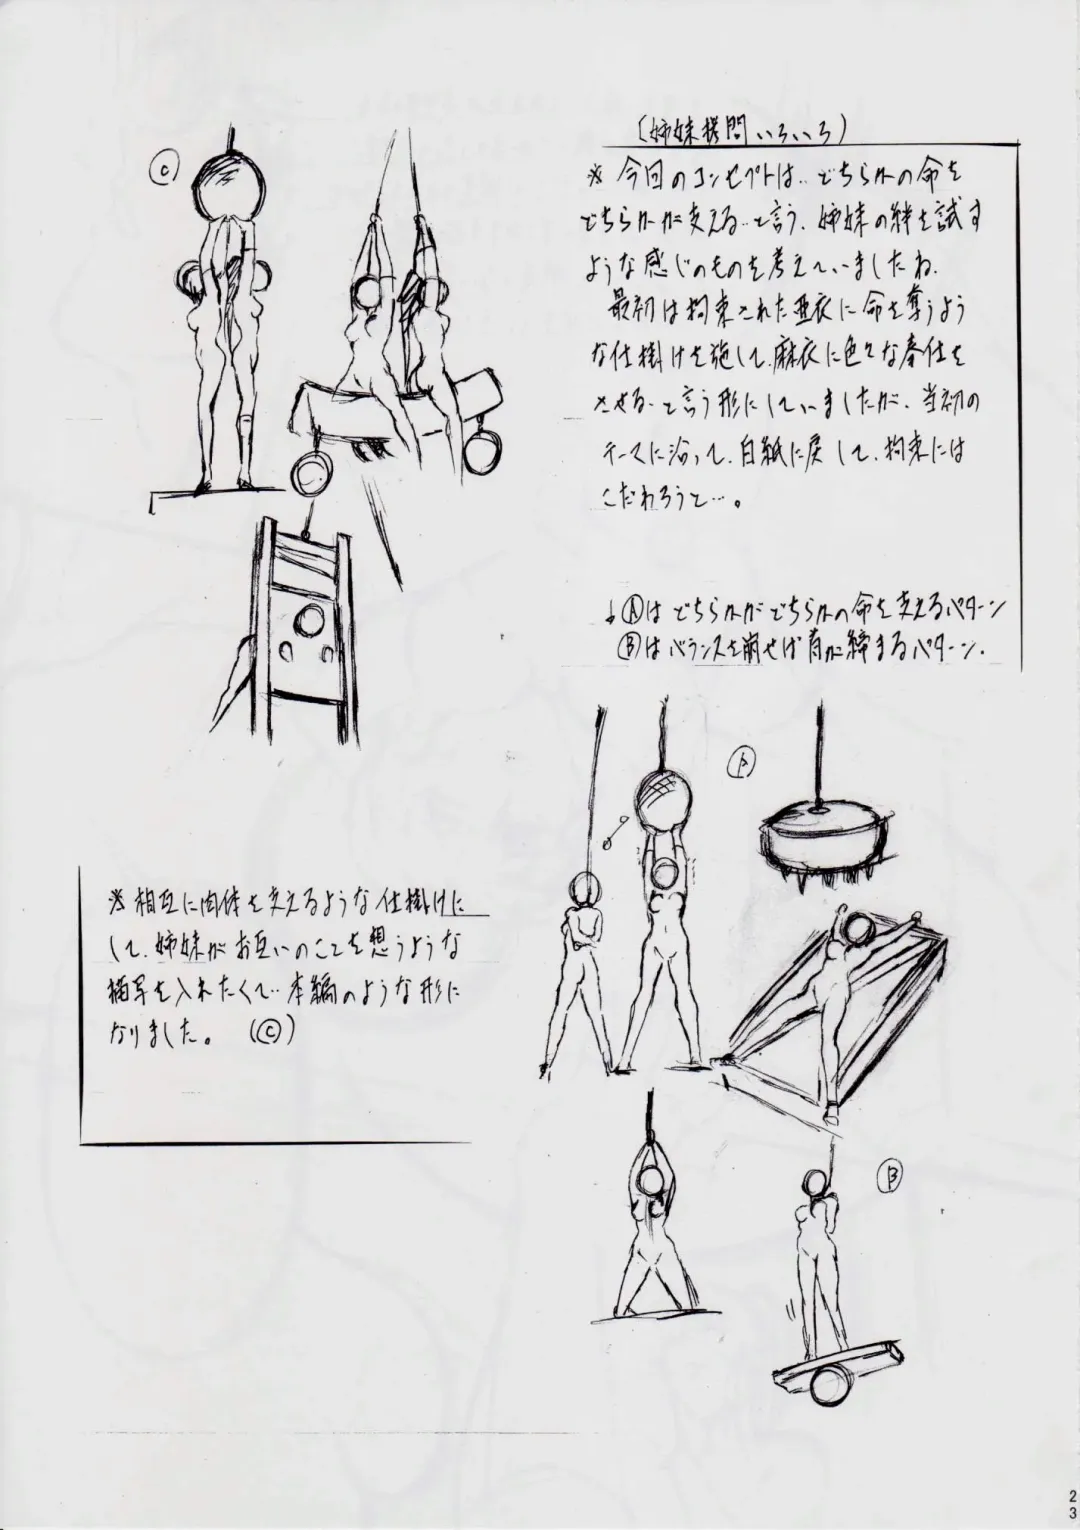 (姉妹拷問いろいろ)
※今回のコンセプトは‥どちらかの命を
どちらかが支える‥と言う、姉妹の絆を試す
ような感じのものを考えていましたね。
最初は拘束された亜衣に命を奪うよう
な仕掛けを施して、麻衣に色々な奉仕を
させる‥と言う形にしていましたが、当初の
テーマに沿って、白紙に戻して、拘束には
こだわろうと…。
↓Ⓐはどちらかがどちらかの命を支えるパターン
Ⓑはバランスを崩せば首が締まるパターン.
Ⓒ
※相互に肉体を支えるような仕掛けに
して、姉妹がお互いのことを想うような
描写を入れたくて‥本編のような形に
なりました。 (Ⓒ)
Ⓑ
23